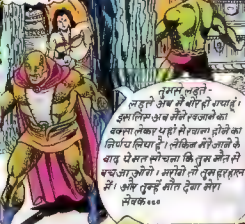 तुमसे लड़ते-
लड़ते अब मैं बोर हो गया हूं
इसलिए अब मैंने खजाने का
बक्सा लेकर यहां से रवाना होने का
निर्णय लिया है। लेकिन मेरे जाने के
बाद ये मत सोचना कि तुम मौत से
बच जाओगे। मरोगे तो तुम हर हाल
में। और तुम्हें मौत देगा मेरा
सेवक...